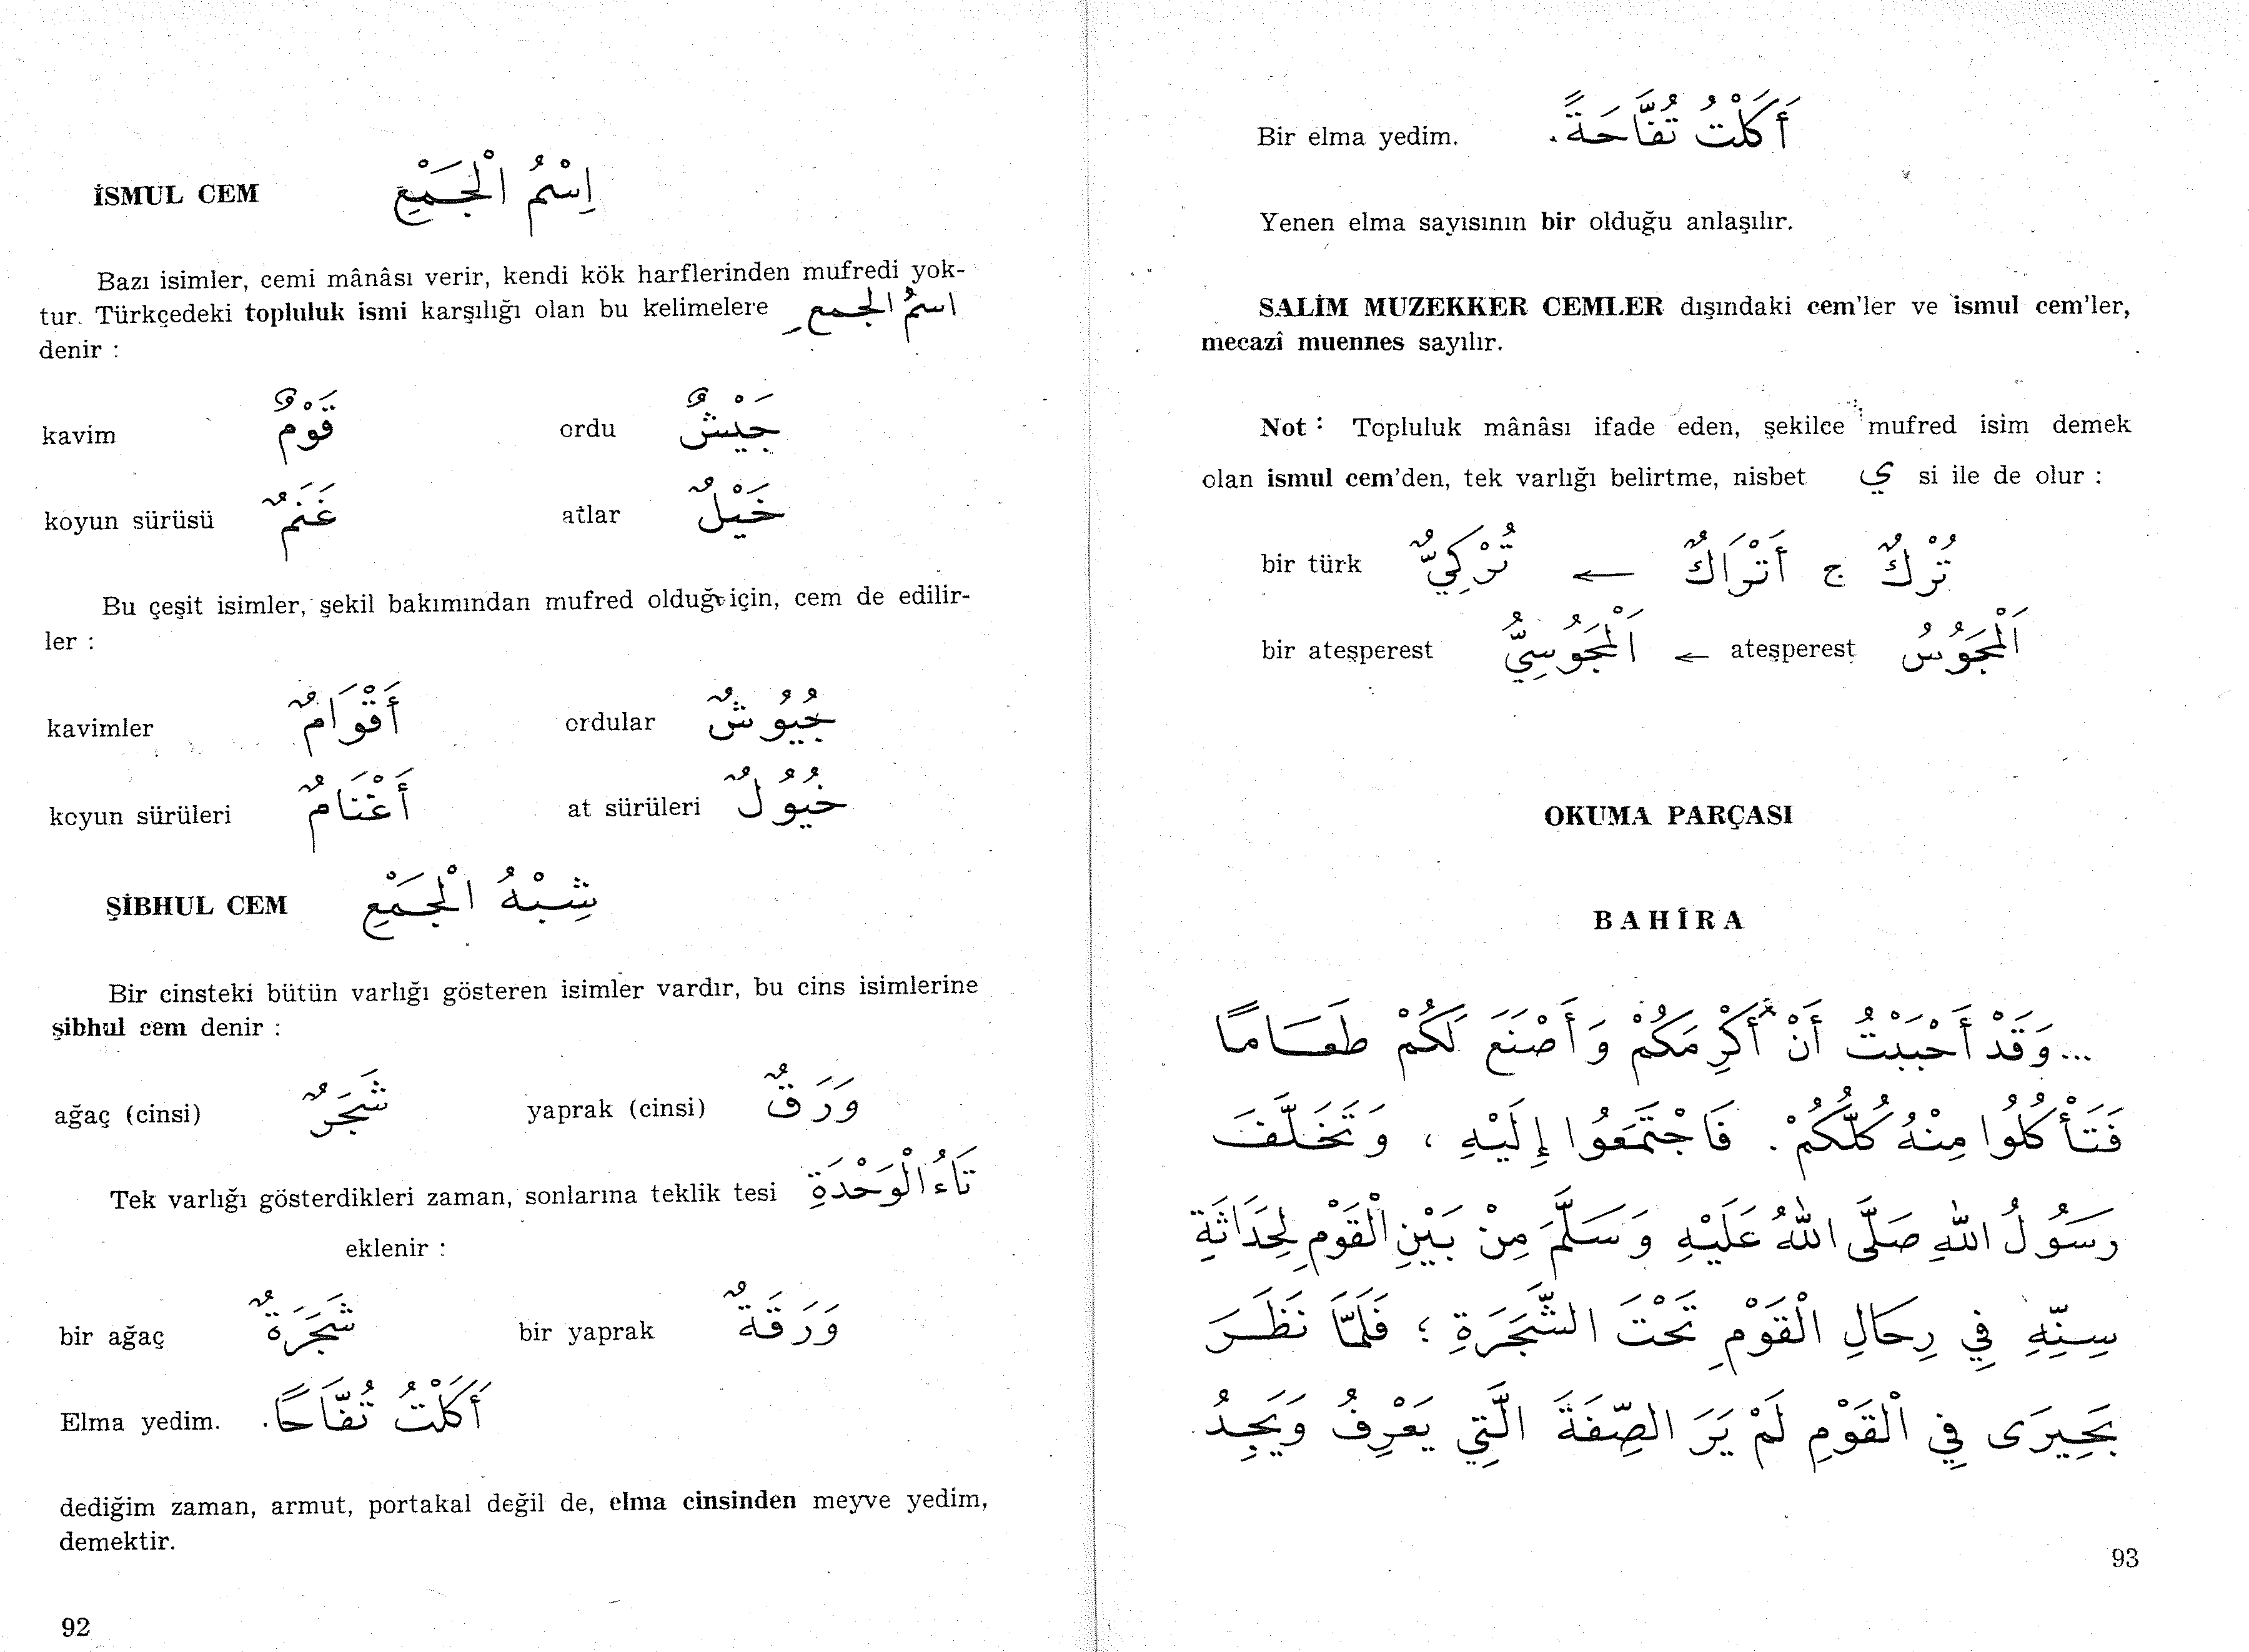 İSMUL CEM اِسْمُ الْجَمْعِ
Bazı isimler, cemi mânâsı verir, kendi kök harflerinden mufredi yok-
tur. Türkçedeki topluluk ismi karşılığı olan bu kelimelere اسمُ الجمع
denir :
kavim قَوْمٌ ordu جَيْشٌ
koyun sürüsü غَنَمٌ atlar خَيْلٌ
Bu çeşit isimler, şekil bakımından mufred olduğu için, cem de edilir-
ler :
kavimler أَقْوَامٌ ordular جُيُوشٌ
koyun sürüleri أَغْنَامٌ at sürüleri خُيُولٌ
ŞİBHUL CEM شِبْهُ الْجَمْعِ
Bir cinsteki bütün varlığı gösteren isimler vardır, bu cins isimlerine
şibhul cem denir :
ağaç (cinsi) شَجَرٌ yaprak (cinsi) وَرَقٌ
Tek varlığı gösterdikleri zaman, sonlarına teklik tesi تَاءُ الْوَحْدَةِ
eklenir :
bir ağaç شَجَرَةٌ bir yaprak وَرَقَةٌ
Elma yedim. أَكَلْتُ تُفَّاحًا.
dediğim zaman, armut, portakal değil de, elma cinsinden meyve yedim,
demektir.
92
Bir elma yedim. أَكَلْتُ تُفَّاحَةً.
Yenen elma sayısının bir olduğu anlaşılır.
SALİM MUZEKKER CEMLER dışındaki cem'ler ve ismul cem'ler,
mecazî muennes sayılır.
Not : Topluluk mânâsı ifade eden, şekilce mufred isim demek
olan ismul cem'den, tek varlığı belirtme, nisbet ي si ile de olur :
bir türk تُرْكِيٌّ ← أَتْرَاكٌ ج تُرْكٌ
bir ateşperest اَلْمَجُوسِيُّ ← ateşperest اَلْمَجُوسُ
OKUMA PARÇASI
BAHÎRA
...وَقَدْ أَحْبَبْتُ أَنْ أُكْرِمَكُمْ وَأَصْنَعَ لَكُمْ طَعَامًا
فَتَأْكُلُوا مِنْهُ كُلُّكُمْ. فَاجْتَمَعُوا إِلَيْهِ ، وَتَخَلَّفَ
رَسُولُ اللهِ صَلَّى اللهُ عَلَيْهِ وَسَلَّمَ مِنْ بَيْنِ الْقَوْمِ لِحَدَاثَةِ
سِنِّهِ فِي رِحَالِ الْقَوْمِ تَحْتَ الشَّجَرَةِ ؛ فَلَمَّا نَظَرَ
بَحِيرَى فِي الْقَوْمِ لَمْ يَرَ الصِّفَةَ الَّتِي يَعْرِفُ وَيَجِدُ
93